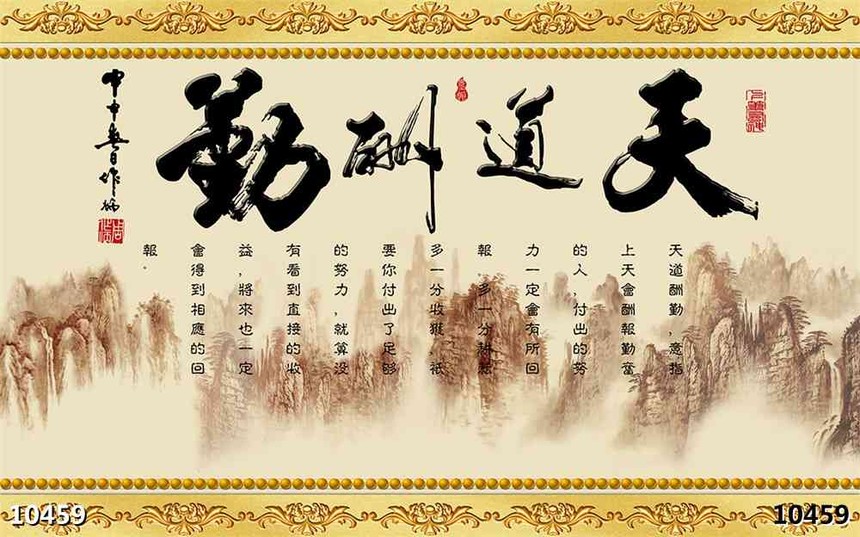 天道酬勤
天道酬勤,意指
上天會酬報勤奮
的人,付出的努
力一定會有所回
報,多一分耕耘
多一分收獲,祇
要你付出了足够
的努力,就算没
有看到直接的收
益,將來也一定
會得到相應的回
報。
10459
10459